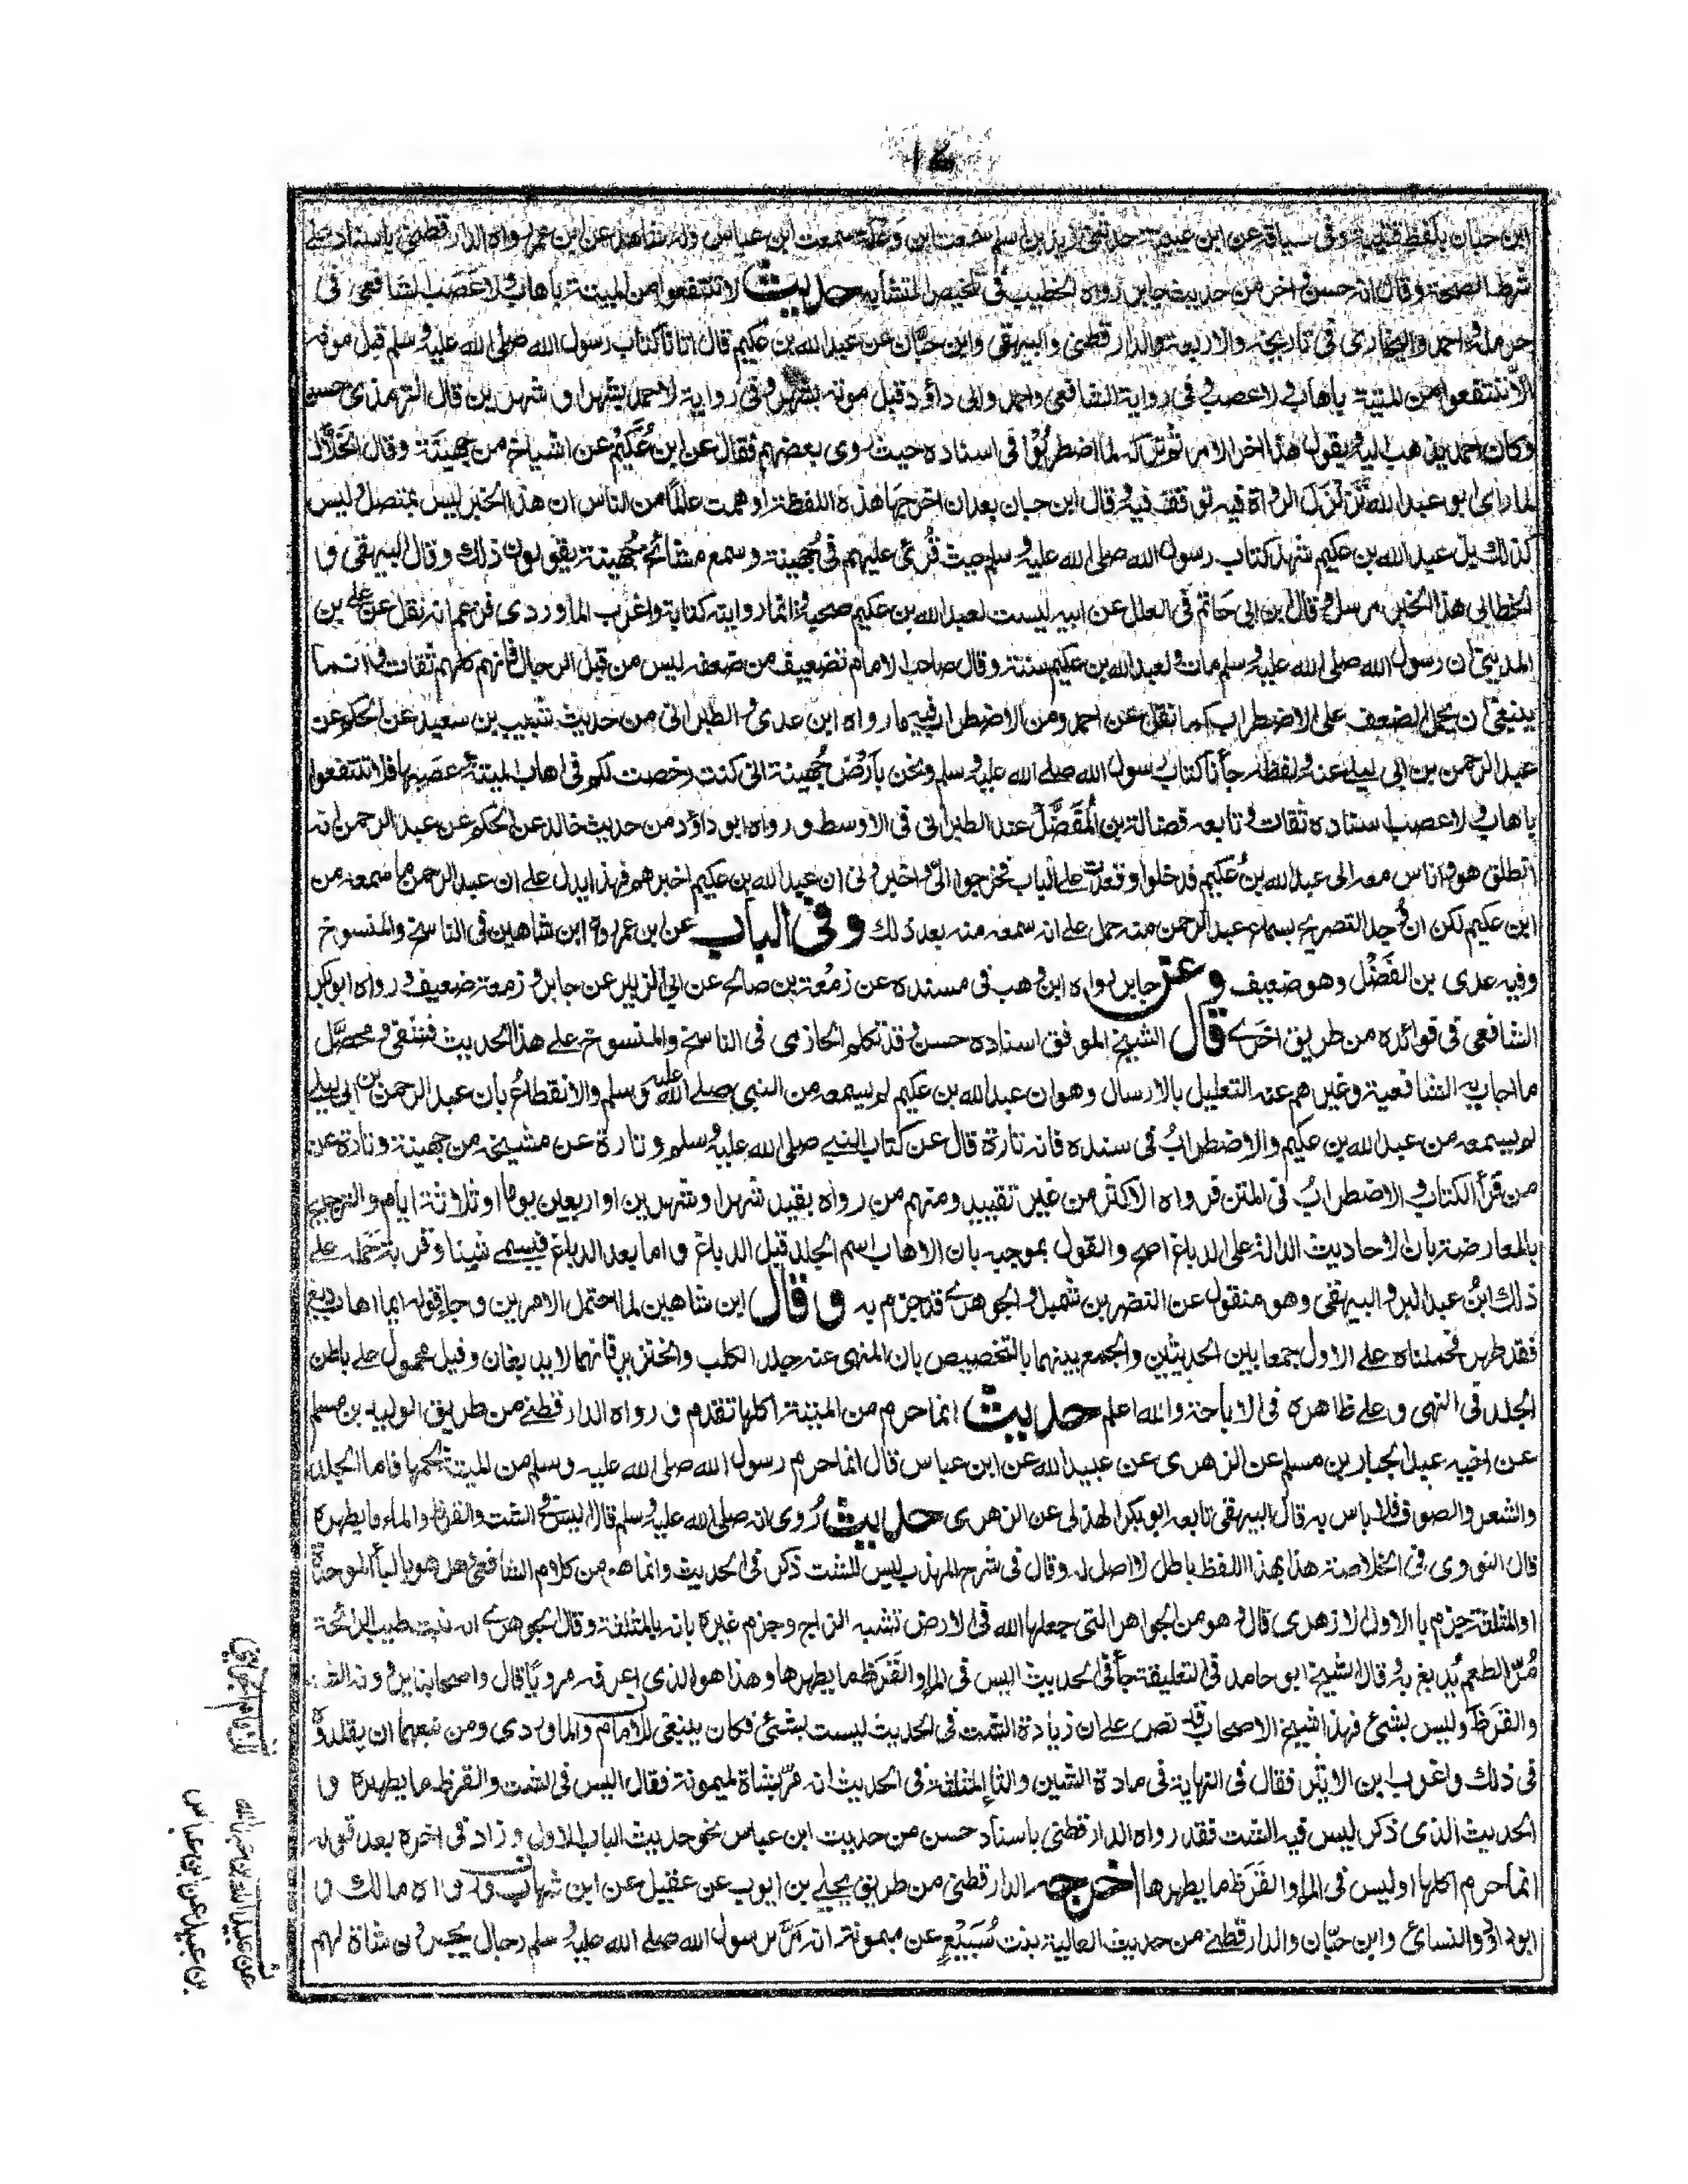 ١٧
ابن حبان بلفظ قتيبة وفى سياقه عن ابن عيينة حدثنى زيد بن اسلم سمعت ابن وعلة سمعت ابن عباس وله شاهد عن ابن عمر رواه الدارقطنى باسناد على
شرط الصحة وقال انه حسن واخر من حديث جابر رواه الخطيب فى تلخيص المتشابه حديث لا تنتفعوا من الميتة باهاب ولا عصب الشافعى فى
حرملة واحمد والبخارى فى تاريخه والاربعة والدارقطنى والبيهقى وابن حبان عن عبد الله بن عكيم قال اتانا كتاب رسول الله صلى الله عليه وسلم قبل موته
الا تنتفعوا من الميتة باهاب ولا عصب وفى رواية الشافعى واحمد وابى داؤد قبل موته بشهر وفى رواية لاحمد بشهر او شهرين قال الترمذى حسن
وكان احمد يذهب اليه ويقول هذا اخر الامر ثم تركه لما اضطربوا فى اسناده حيث روى بعضهم فقال عن ابن عُكَيم عن اشياخ من جهينة وقال الخلال
لما راى ابو عبد الله تزلزل الرواة فيه توقف فيه وقال ابن حبان بعد ان اخرجها هذه اللفظة اوهمت عالما من الناس ان هذا الخبر ليس بمتصل وليس
كذلك بل عبد الله بن عكيم شهد كتاب رسول الله صلى الله عليه وسلم حيث قُرئ عليهم فى جُهينة وسمع مشائخ جُهينة يقولون ذلك وقال البيهقى و
الخطابى هذا الخبر مرسل وقال بن ابى حاتم فى العلل عن ابيه ليست لعبد الله بن عكيم صحبة وانما روايته كتابة واغرب الماوردى فزعم انه نقل عن على بن
المدينى ان رسول الله صلى الله عليه وسلم مات ولعبد الله بن عكيم سنة وقال صاحب الامام تضعيف من ضعفه ليس من قبل الرجال فانهم كلهم ثقات وانما
ينبغى ان يحمل الضعف على الاضطراب كما نقل عن احمد ومن الاضطراب فيه ما رواه ابن عدى والطبرانى من حديث شبيب بن سعيد عن الحكم عن
عبد الرحمن بن ابى ليلے عنه ولفظه جأنا كتاب رسول الله صلى الله عليه وسلم ونحن بأرْض جُهينة انى كنت رخصت لكم فى اهاب الميتة وعصبها فلا تنتفعوا
باهاب ولا عصب اسناده ثقات وتابعه فضالة بن المُفَضَّل عند الطبرانى فى الاوسط ورواه ابو داؤد من حديث خالد عن الحكم عن عبد الرحمن انه
انطلق هو واناس معه الى عبد الله بن عُكيم فدخلوا وقعدت على الباب فخرجوا الىّ واخبرونى ان عبد الله بن عكيم اخبرهم فهذا يدل على ان عبد الرحمن ما سمعه من
ابن عكيم لكن ان وُجد التصريح بسماع عبد الرحمن منه حمل على انه سمعه منه بعد ذلك وفى الباب عن ابن عمر رواه ابن شاهين فى الناسخ والمنسوخ
وفيه عدى بن الفَضْل وهو ضعيف وعن جابر رواه ابن وهب فى مسنده عن زمْعة بن صالح عن ابى الزبير عن جابر و زمعة ضعيف ورواه ابو بكر
الشافعى فى فوائده من طريق اخرے قال الشيخ الموفق اسناده حسن وقد تكلم الحازمى فى الناسخ والمنسوخ على هذا الحديث فشفى ومحصّل
ما اجاب به الشافعية وغيرهم عنه التعليل بالارسال وهو ان عبد الله بن عكيم لم يسمعه من النبى صلى الله عليه وسلم والانقطاعُ بان عبد الرحمن بن ابى ليلے
لم يسمعه من عبد الله بن عكيم والاضطرابُ فى سنده فانه تارة قال عن كتاب النبى صلى الله عليه وسلم وتارة عن مشيخة من جهينة وتارة عن
من قرأ الكتاب والاضطرابُ فى المتن فرواه الاكثر من غير تقييد ومنهم من رواه بقيد شهر او شهرين او اربعين يوما او ثلاثة ايام والترجيح
بالمعارضة بان الاحاديث الدالة على الدباغ اصح والقول بموجبه بان الاهاب اسم الجلد قبل الدباغ واما بعد الدباغ فيسمے شنا وقربة حَمَله على
ذلك ابنُ عبد البر والبيهقى وهو منقول عن النضر بن شميل والجوهرے قد جزم به وقال ابن شاهين لما احتمل الامرين وجاء قوله ايما اهاب دبغ
فقد طهر فحملناه على الاول جمعا بين الحديثين والجمع بينهما بالتخصيص بان المنهى عنه جلد الكلب والخنزير فانهما لا يدبغان وقيل محمول على باطن
الجلد فى النهى وعلى ظاهره فى الاباحة والله اعلم حديث انما حرم من الميتة اكلها تقدم ورواه الدارقطنے من طريق الوليد بن مسلم
عن اخيه عبد الجبار بن مسلم عن الزهرى عن عبيد الله عن ابن عباس قال انما حرم رسول الله صلى الله عليه وسلم من الميتة لحمها فاما الجلد
والشعر والصوف فلا باس به قال البيهقى تابعه ابو بكر الهذلى عن الزهرى حديث رُوى انه صلى الله عليه وسلم قال اليس فى الشث والقرظ والماء ما يطهره
قال النووى فى الخلاصة هذا بهذا اللفظ باطل لا اصل له وقال فى شرح المهذب ليس للشث ذكر فى الحديث وانما هو من كلام الشافعى وهل هو بالبأ الموحدة
او المثلثة جزم بالاول الازهرى قال وهو من الجواهر التى جعلها الله فى الارض تشبه الزاج وجزم غيره بانه بالمثلثة وقال الجوهرے انه نبت طيب الرائحة
مُرّ الطعم يُدبغ به وقال الشيخ ابو حامد فى التعليقة جأ فى الحديث اليس فى الماء والقَرَظ ما يطهرها وهذا هو الذى اعرفه مرويًا قال واصحابنا يروونه الشث
والقرظ وليس بشئ فهذا شيخ الاصحاب قد نص على ان زيادة الشث فى الحديث ليست بشئ فكان ينبغى للامام والماوردى ومن تبعهما ان يقلدوه
فى ذلك واغرب ابن الاثير فقال فى النهاية فى مادة الشين والثاء المثلثة فى الحديث انه مرّ بشاة لميمونة فقال اليس فى الشث والقرظ ما يطهره و
الحديث الذى ذكر ليس فيه الشث فقد رواه الدارقطنى باسناد حسن من حديث ابن عباس نحو حديث الباب الاول وزاد فى اخره بعد قوله
انما حرم اكلها اوليس فى الماء والقَرَظ ما يطهرها اخرجه الدارقطنى من طريق يحيے بن ايوب عن عقيل عن ابن شهاب ورواه مالك و
ابو داؤد والنسائى وابن حبّان والدارقطنے من حديث العالية بنت سُبَيْع عن ميمونة انه مَرَّ برسول الله صلى الله عليه وسلم رجال يجرون شاة لهم